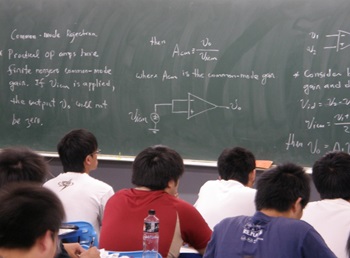 Common-mode Rejection
* Practical op amps have
finite nonzero common-mode
gain. If Vicm is applied,
the output vo will not
be zero.
then Acm = vo/vicm
where Acm is the common-mode gain
vicm
vo
v1
v2
* Consider
gain and
vid = v2-
vicm =
then vo =